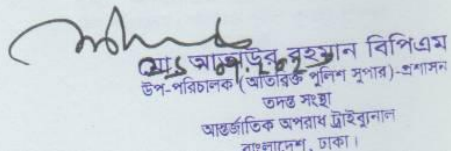 মোঃ আতাউর রহমান বিপিএম
উপ-পরিচালক (অতিরিক্ত পুলিশ সুপার)-প্রশাসন
তদন্ত সংস্থা
আন্তর্জাতিক অপরাধ ট্রাইব্যুনাল
বাংলাদেশ, ঢাকা।